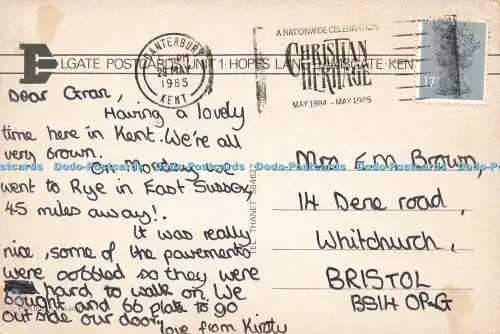 ELGATE POSTCARDS UNIT 1 HOPES LANE RAMSGATE KENT
CANTERBURY
29 MAY
1985
KENT
A NATIONWIDE CELEBRATION
CHRISTIAN
HERITAGE
MAY 1984 - MAY 1985
17
Dear Gran,
Having a lovely
time here in Kent. We're all
very brown.
On Monday we
went to Rye in East Sussex,
45 miles away!.
It was really
nice, some of the pavements
were cobbled so they were
hard to walk on. We
bought and 66 plate to go
outside our door.
love from Kirsty
TEL: THANET 584622
Mrs E M Brown,
14 Dene road,
Whitchurch,
BRISTOL
BS14 0PG
Dodo-Postcards Dodo-Postcards Dodo-Postcards Dodo-Postcards